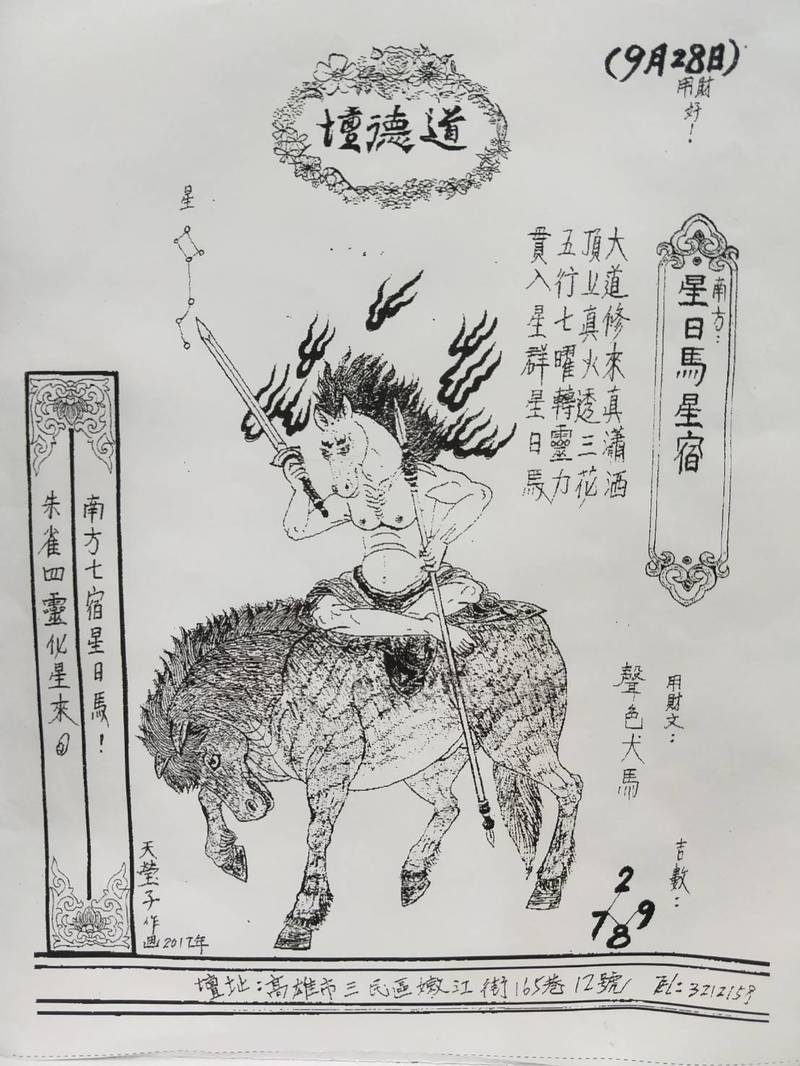 (9月28日)
用財
好！
道德壇
星
南方：
星日馬星宿
大道修來真瀟洒
頂上真火透三花
五行七曜轉靈力
貫入星群星日馬
南方七宿星日馬！
朱雀四靈化星來
用財文：
聲色犬馬
吉數：
2
7 9
8
天瑩子作
画2017年
壇址：高雄市三民區嫩江街165巷12號 TEL:3212158